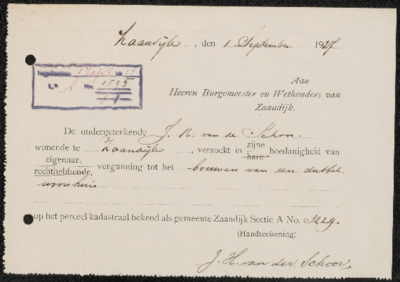 Zaandijk, den 1 September 1927
Aan
Heeren Burgemeester en Wethouders van
Zaandijk.
1595
De ondergeteekende J. H. van der Schoor
wonende te Zaandijk, verzoekt in zijne hare hoedanigheid van
eigenaar, rechthebbende, vergunning tot het bouwen van een dubbel
woonhuis
op het perceel kadastraal bekend als gemeente Zaandijk Sectie A No.
(Handteekening)
J. H. van der Schoor